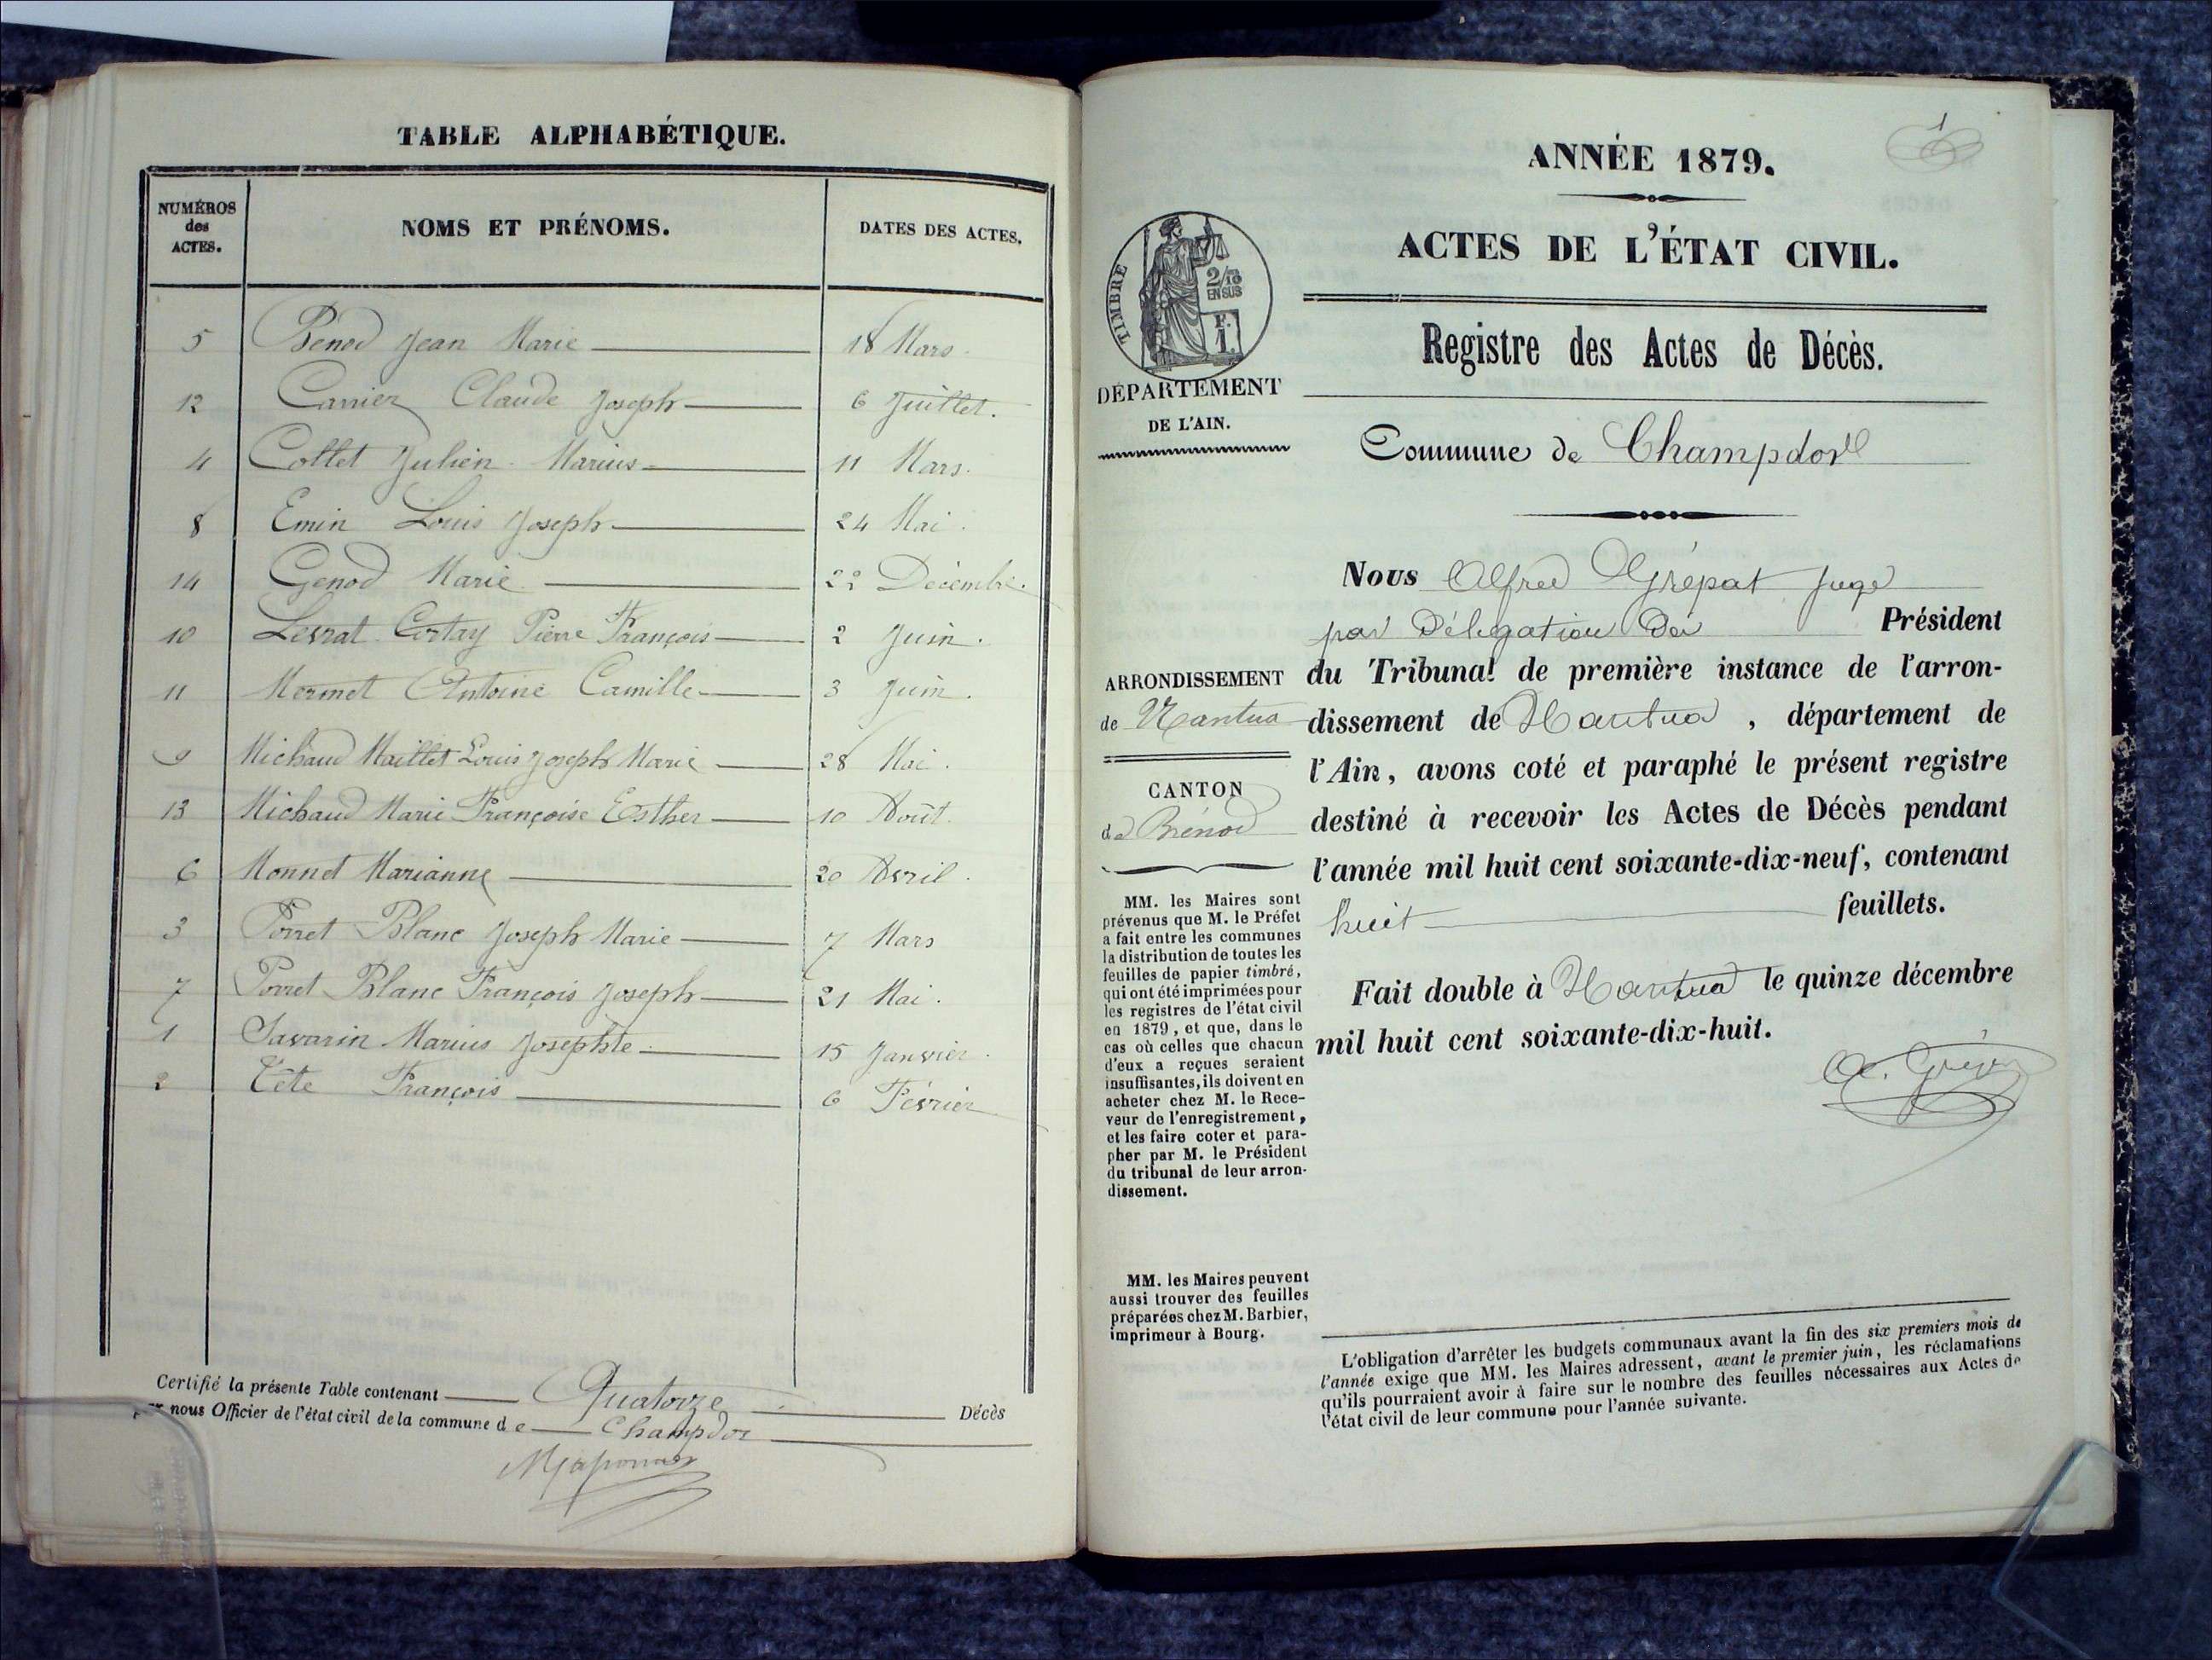 TABLE ALPHABÉTIQUE.
NUMÉROS des ACTES. NOMS ET PRÉNOMS. DATES DES ACTES.
5 Bénod Jean Marie 18 Mars
12 Carrier Claude Joseph 6 Juillet.
4 Collet Julien Marius 11 Mars.
8 Emin Louis Joseph 24 Mai.
14 Genod Marie 22 Décembre.
10 Levrat Cortay Pierre François 2 Juin.
11 Mermet Antoine Camille 3 Juin.
9 Michaud Maillet Louis Joseph Marie 28 Mai.
13 Michaud Marie Françoise Esther 10 Août.
6 Monnet Marianne 20 Avril.
3 Porret Blanc Joseph Marie 7 Mars
7 Porret Blanc François Joseph 21 Mai.
1 Savarin Marius Josephte 15 Janvier.
2 Tête François 6 Février
Certifié la présente Table contenant Quatorze Décès
par nous Officier de l'état civil de la commune de Champdor
1
ANNÉE 1879.
ACTES DE L'ÉTAT CIVIL.
TIMBRE
2/10
EN SUS
F.
1.
DÉPARTEMENT
DE L'AIN.
Registre des Actes de Décès.
Commune de Champdor
Nous Alfred Grépat Juge
par Délégation du Président
du Tribunal de première instance de l'arron-
dissement de Nantua, département de
l'Ain, avons coté et paraphé le présent registre
destiné à recevoir les Actes de Décès pendant
l'année mil huit cent soixante-dix-neuf, contenant
huit feuillets.
Fait double à Nantua le quinze décembre
mil huit cent soixante-dix-huit.
ARRONDISSEMENT
de Nantua
CANTON
de Brénod
MM. les Maires sont
prévenus que M. le Préfet
a fait entre les communes
la distribution de toutes les
feuilles de papier timbré,
qui ont été imprimées pour
les registres de l'état civil
en 1879, et que, dans le
cas où celles que chacun
d'eux a reçues seraient
insuffisantes, ils doivent en
acheter chez M. le Rece-
veur de l'enregistrement,
et les faire coter et para-
pher par M. le Président
du tribunal de leur arron-
dissement.
MM. les Maires peuvent
aussi trouver des feuilles
préparées chez M. Barbier,
imprimeur à Bourg.
L'obligation d'arrêter les budgets communaux avant la fin des six premiers mois de
l'année exige que MM. les Maires adressent, avant le premier juin, les réclamations
qu'ils pourraient avoir à faire sur le nombre des feuilles nécessaires aux Actes de
l'état civil de leur commune pour l'année suivante.